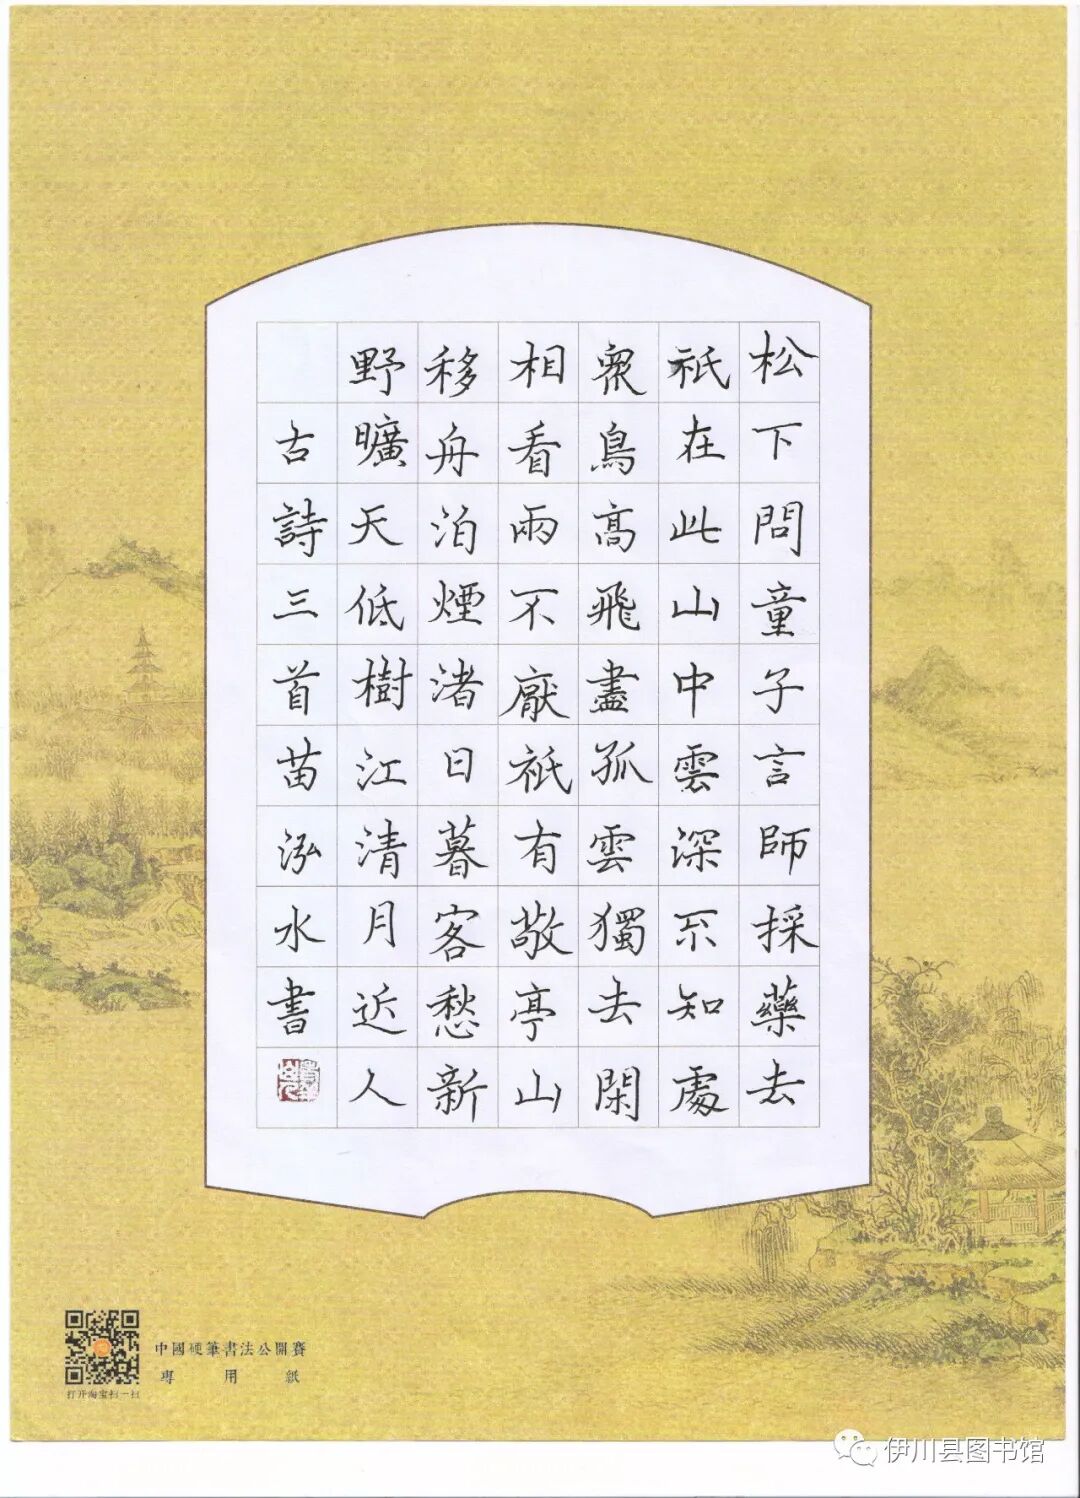 松下問童子言師採藥去
祇在此山中雲深不知處
眾鳥高飛盡孤雲獨去閑
相看兩不厭祇有敬亭山
移舟泊煙渚日暮客愁新
野曠天低樹江清月近人
古詩三首苗泓水書
中國硬筆書法公開賽
專用紙
打开淘宝扫一扫
伊川县图书馆